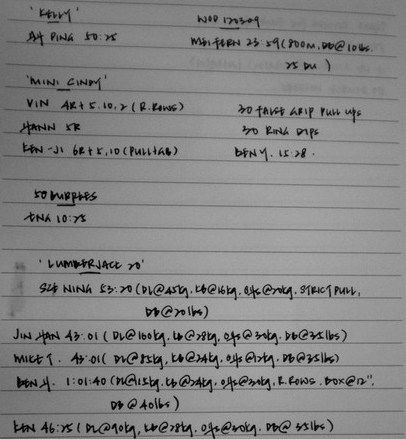 'KELLY' WOD 120309
AH PING 50:25 MEI FERN 23:59 (800m, DB@10lbs.
25 DU)
'MINI CINDY'
VIN 4R+5.10.2 (R.ROWS) 30 FALSE GRIP PULL UPS
HANN 5R 30 RING DIPS
KEN-JI 6R+5,10 (PULL+GB) BEN Y. 15:28.
50 BURPEES
ENG 10:25
'LUMBERJACK 20'
SZE NING 53:20 (DL@45kg. KB@16kg. OHS@20kg. STRICT PULL,
DB@20lbs)
JIN HAN 43:01 (DL@100kg. KB@28kg. OHS@30kg. DB@35lbs)
MIKE T. 43:01 (DL@85kg. KB@24kg. OHS@12kg. DB@35lbs)
BEN H. 1:01:40 (DL@115kg. KB@24kg. OHS@30kg, R.ROWS. BOX@12",
DB@40lbs)
KEN 46:25 (DL@90kg, KB@28kg. OHS@30kg. DB@35lbs)